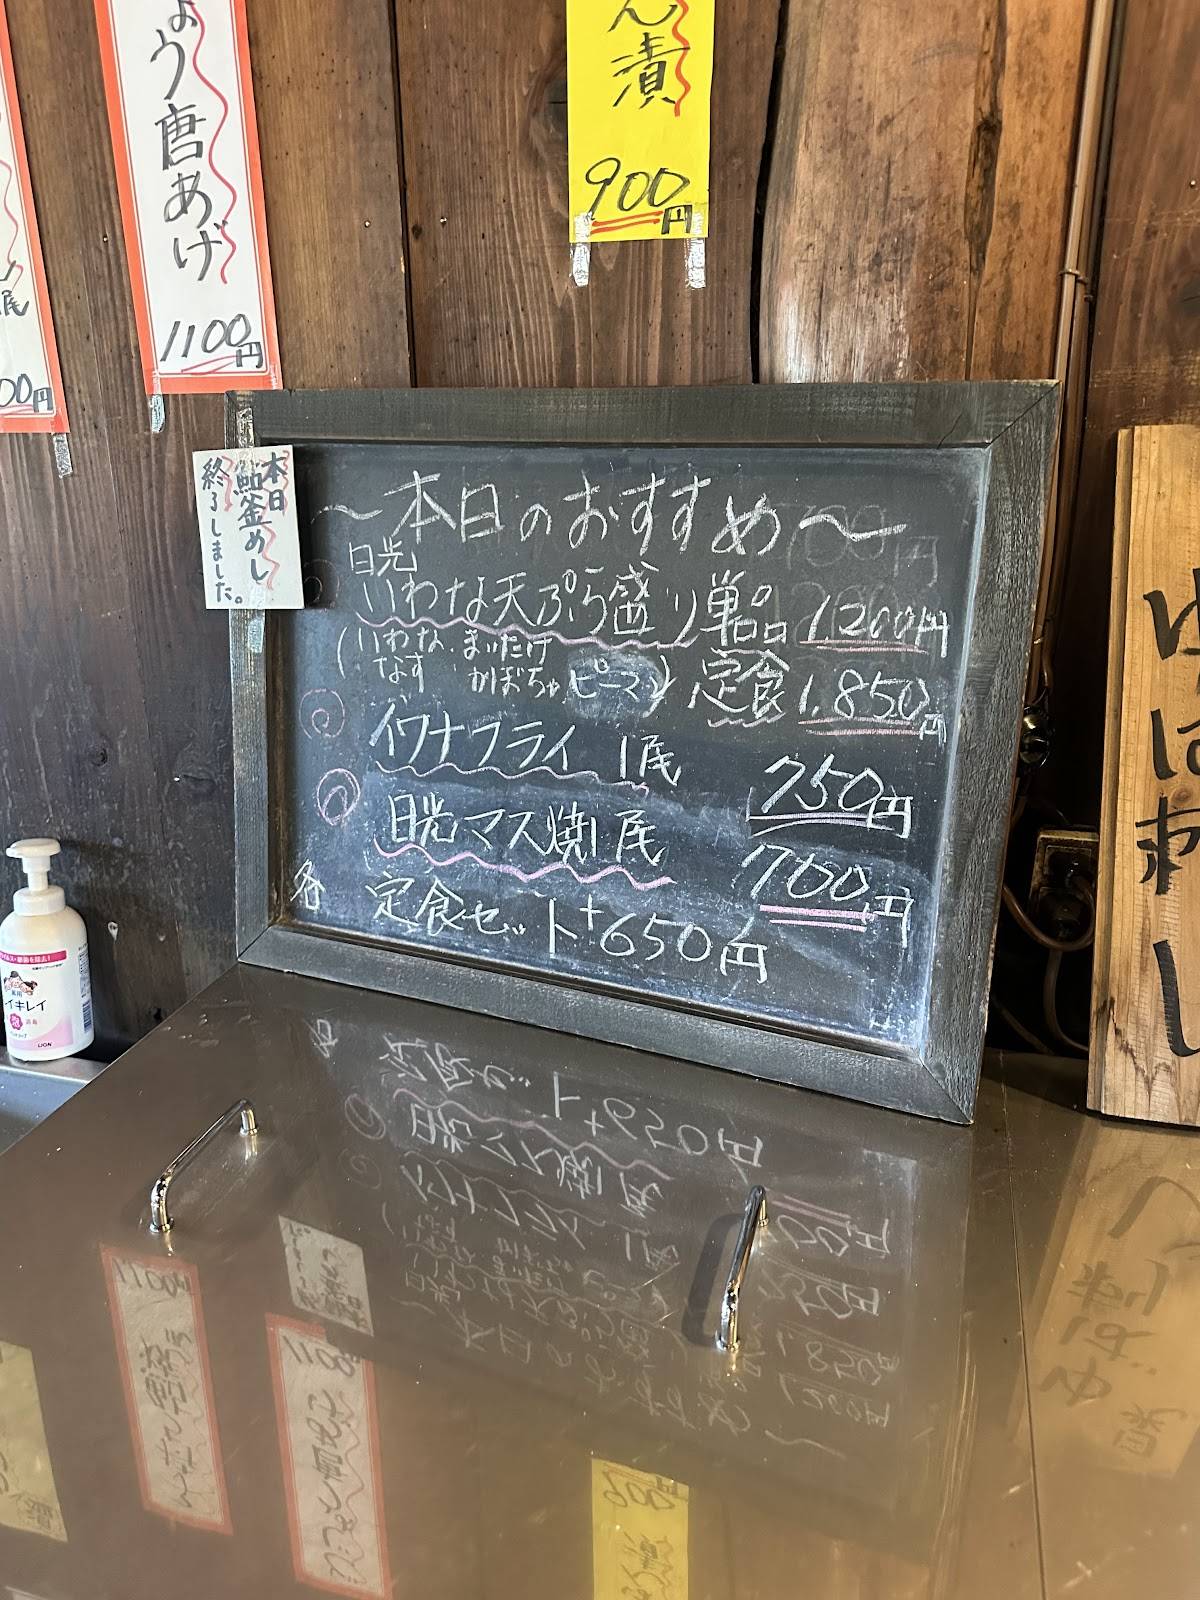 ょう唐あげ
1100円
尾
00円
ん漬
900円
本日
鮎釜めし
終了しました。
～本日のおすすめ～
日光
いわな天ぷら盛り 単品 1,200円
(いわな、まいたけ
なす かぼちゃ ピーマン) 定食 1,850円
イワナフライ 1尾 750円
日光マス焼1尾 700円
各 定食セット+650円
ゆばわし
キレイ
LION